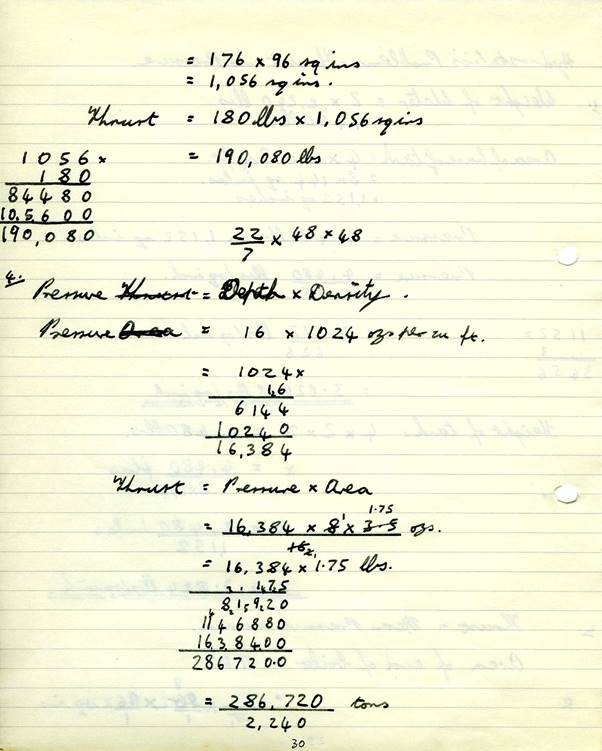 = 176 x 96 sq ins
= 1,056 sq ins.
Thrust = 180 lbs x 1,056 sq ins
= 190,080 lbs
1056 x
180
84480
105600
190,080
22/7 x 48 x 48
4.
Pressure Thrust = Depth x Density.
Pressure Area = 16 x 1024 ozs per cu ft.
= 1024 x
16
6144
10240
16,384
Thrust = Pressure x Area
1.75
= 16,384 x 8 x 3.5 ozs.
16
= 16,384 x 1.75 lbs.
1.75
81920
1146880
1638400
2867200
= 286,720 tons
2,240
30